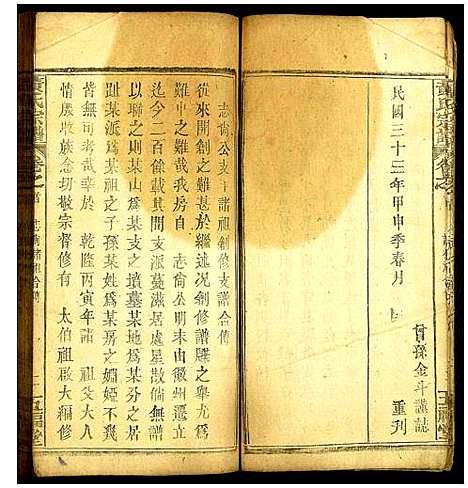 民國三十三年甲申季春月
曾孫金斗謹誌
重刋
志尚公支下諸祖創修支譜合傳
從來開創之難甚於繼述况創修譜牒之舉尤爲
難中之難哉我房自 志尚公明末由徽州遷立
迄今二百餘載其間支派蔓滋居處星散倘無譜
以聯之則某山某地爲某祖之墳墓某地某房分居
趾某派爲某祖之子孫某姓爲某房之婣婭不幾
皆無可考哉 乾隆丙寅年諸 發公大人
情殷收族念切敬宗督修有 太伯祖啟大纘修
黃氏宗譜
卷之首
五福堂